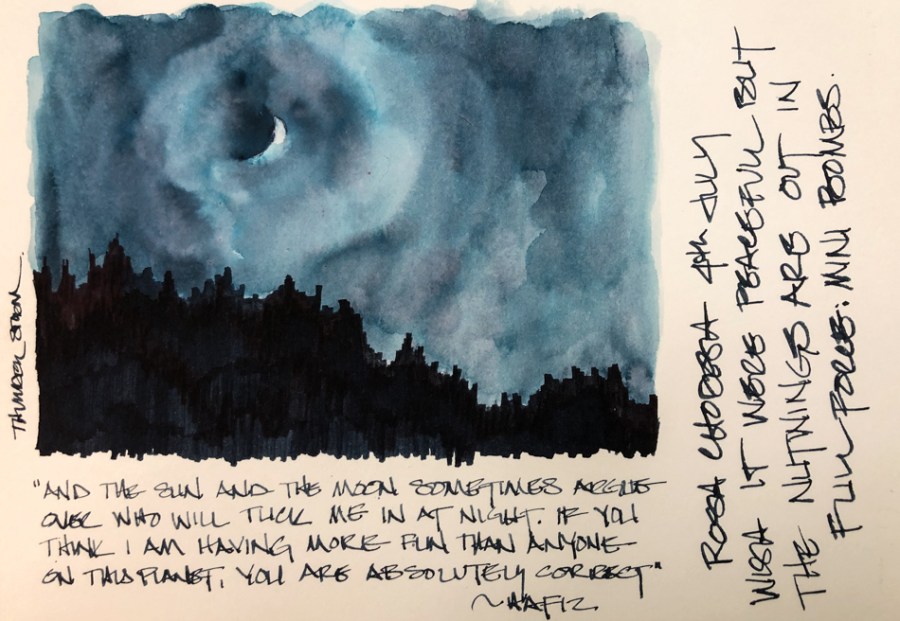 THUNDER STORM.
"AND THE SUN AND THE MOON SOMETIMES ARGUE
OVER WHO WILL TUCK ME IN AT NIGHT. IF YOU
THINK I AM HAVING MORE FUN THAN ANYONE
ON THIS PLANET, YOU ARE ABSOLUTELY CORRECT"
~HAFIZ.
4th JULY
IT WERE PEACEFUL BUT
THE NUTWINGS ARE OUT IN
FULL FORCE: MINI BOMBS.